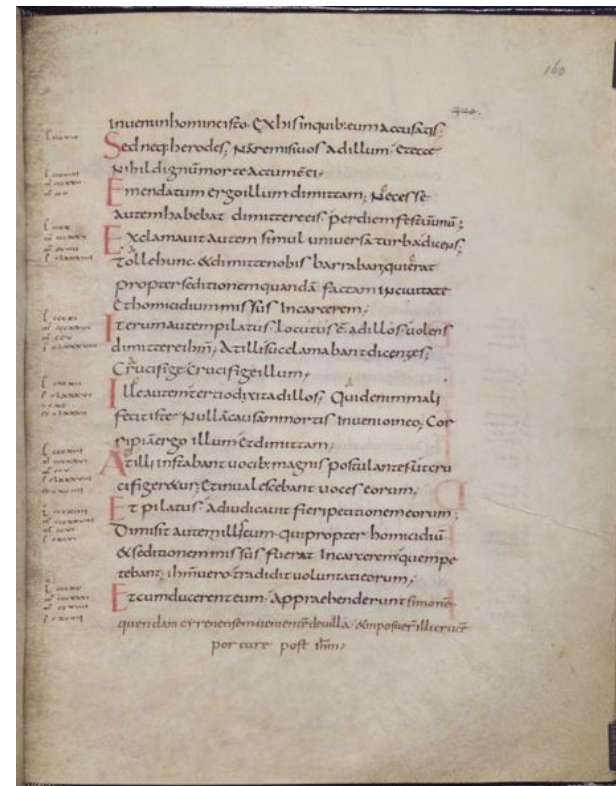 160
inveniinhomineisto. Exhisinquib:eumaccusatis;
Sedneq:herodes; Nāremisiuos adillum. Etecce
Nihildignūmorteactumēei;
Emendatum ergoillum dimittam; Necesse
autemhabebat dimittereeis perdiemfestūunū;
Exclamavit autem simul universa turbadicens;
Tollehunc. &dimittenobis barrabanquierat
propterseditionemquandā factam incivitate
Ethomicidiummissus Incarcerem;
Iterumautempilatus locutus ē adillos uolens
dimittereihm; Atillisucclamabantdicentes;
Crucifige Crucifigeillum;
Illeautemterciodixitadillos; Quidenimmali
fecitiste Nullācausāmmortis Invenioineo; Cor
ripiāergo illum Etdimittam;
Atilli instabant uocib:magnis postulantesutcru
cifiger&ur; Etinualescebant voces eorum;
Et pilatus adiudicauit fieripetitionemeorum;
Dimisit autemilliseum. quipropter homicidiū
&seditionemmissus fuerat Incarceremquempe
tebant; ihmuero tradidit voluntatieorum;
Etcumducerenteum. appraehenderunt simonē
quendam cyrenensemuenientēdeuilla. &imposuer̄ illicrucē
portare post ihm;